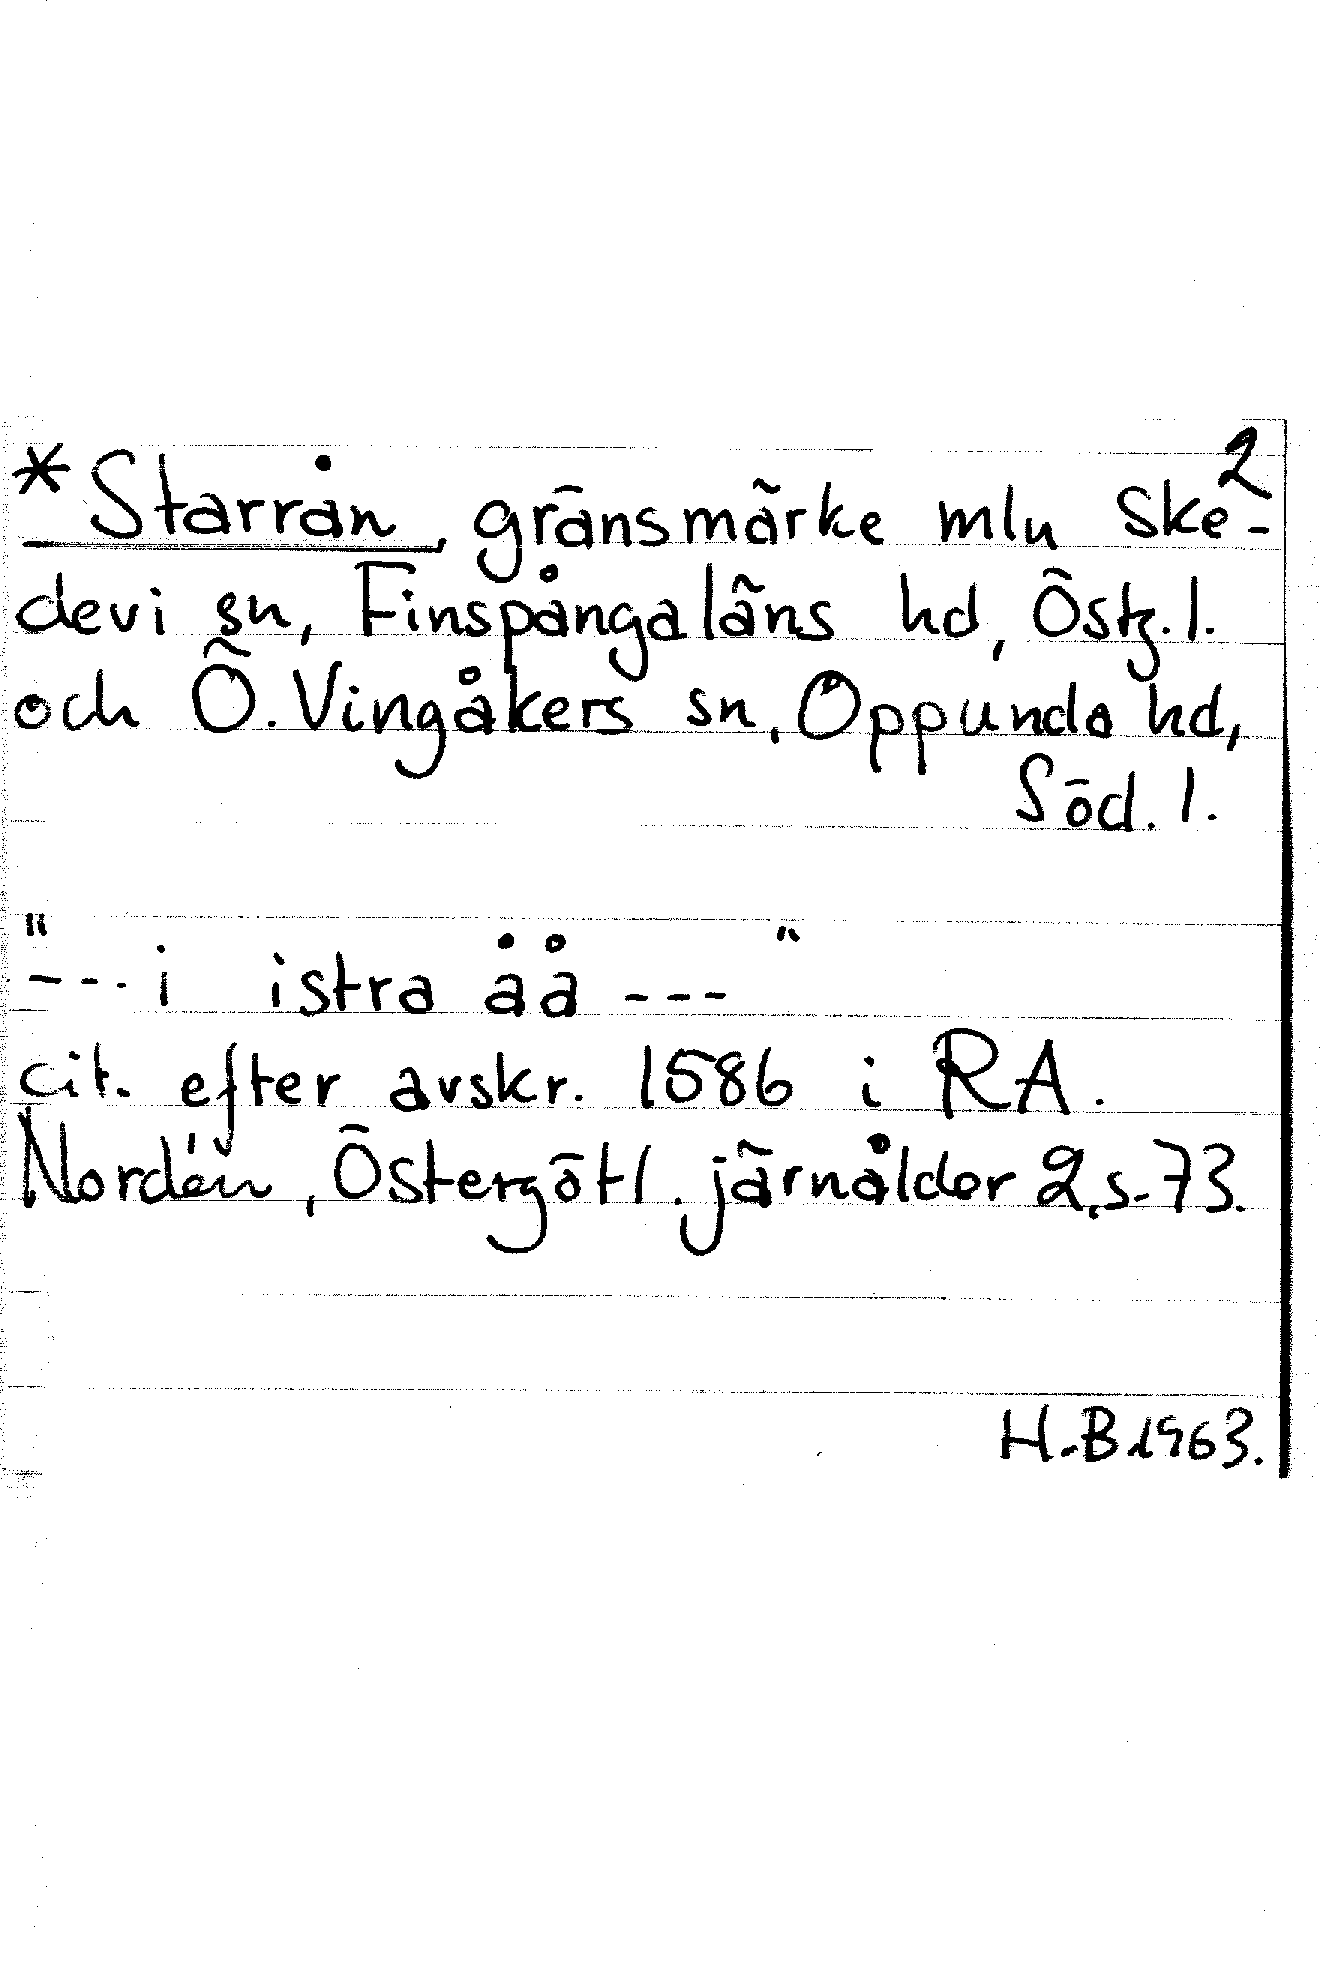 2
*Starrån, gränsmärke mln Ske-
devi sn, Finspångaläns hd, Östg. l.
och Ö. Vingåkers sn, Oppunda hd,
Söd. l.
"---i istra åå ---"
cit. efter avskr. 1586 i RA.
Nordén, Östergötl. järnålder 2, s. 73.
H.B 1963.